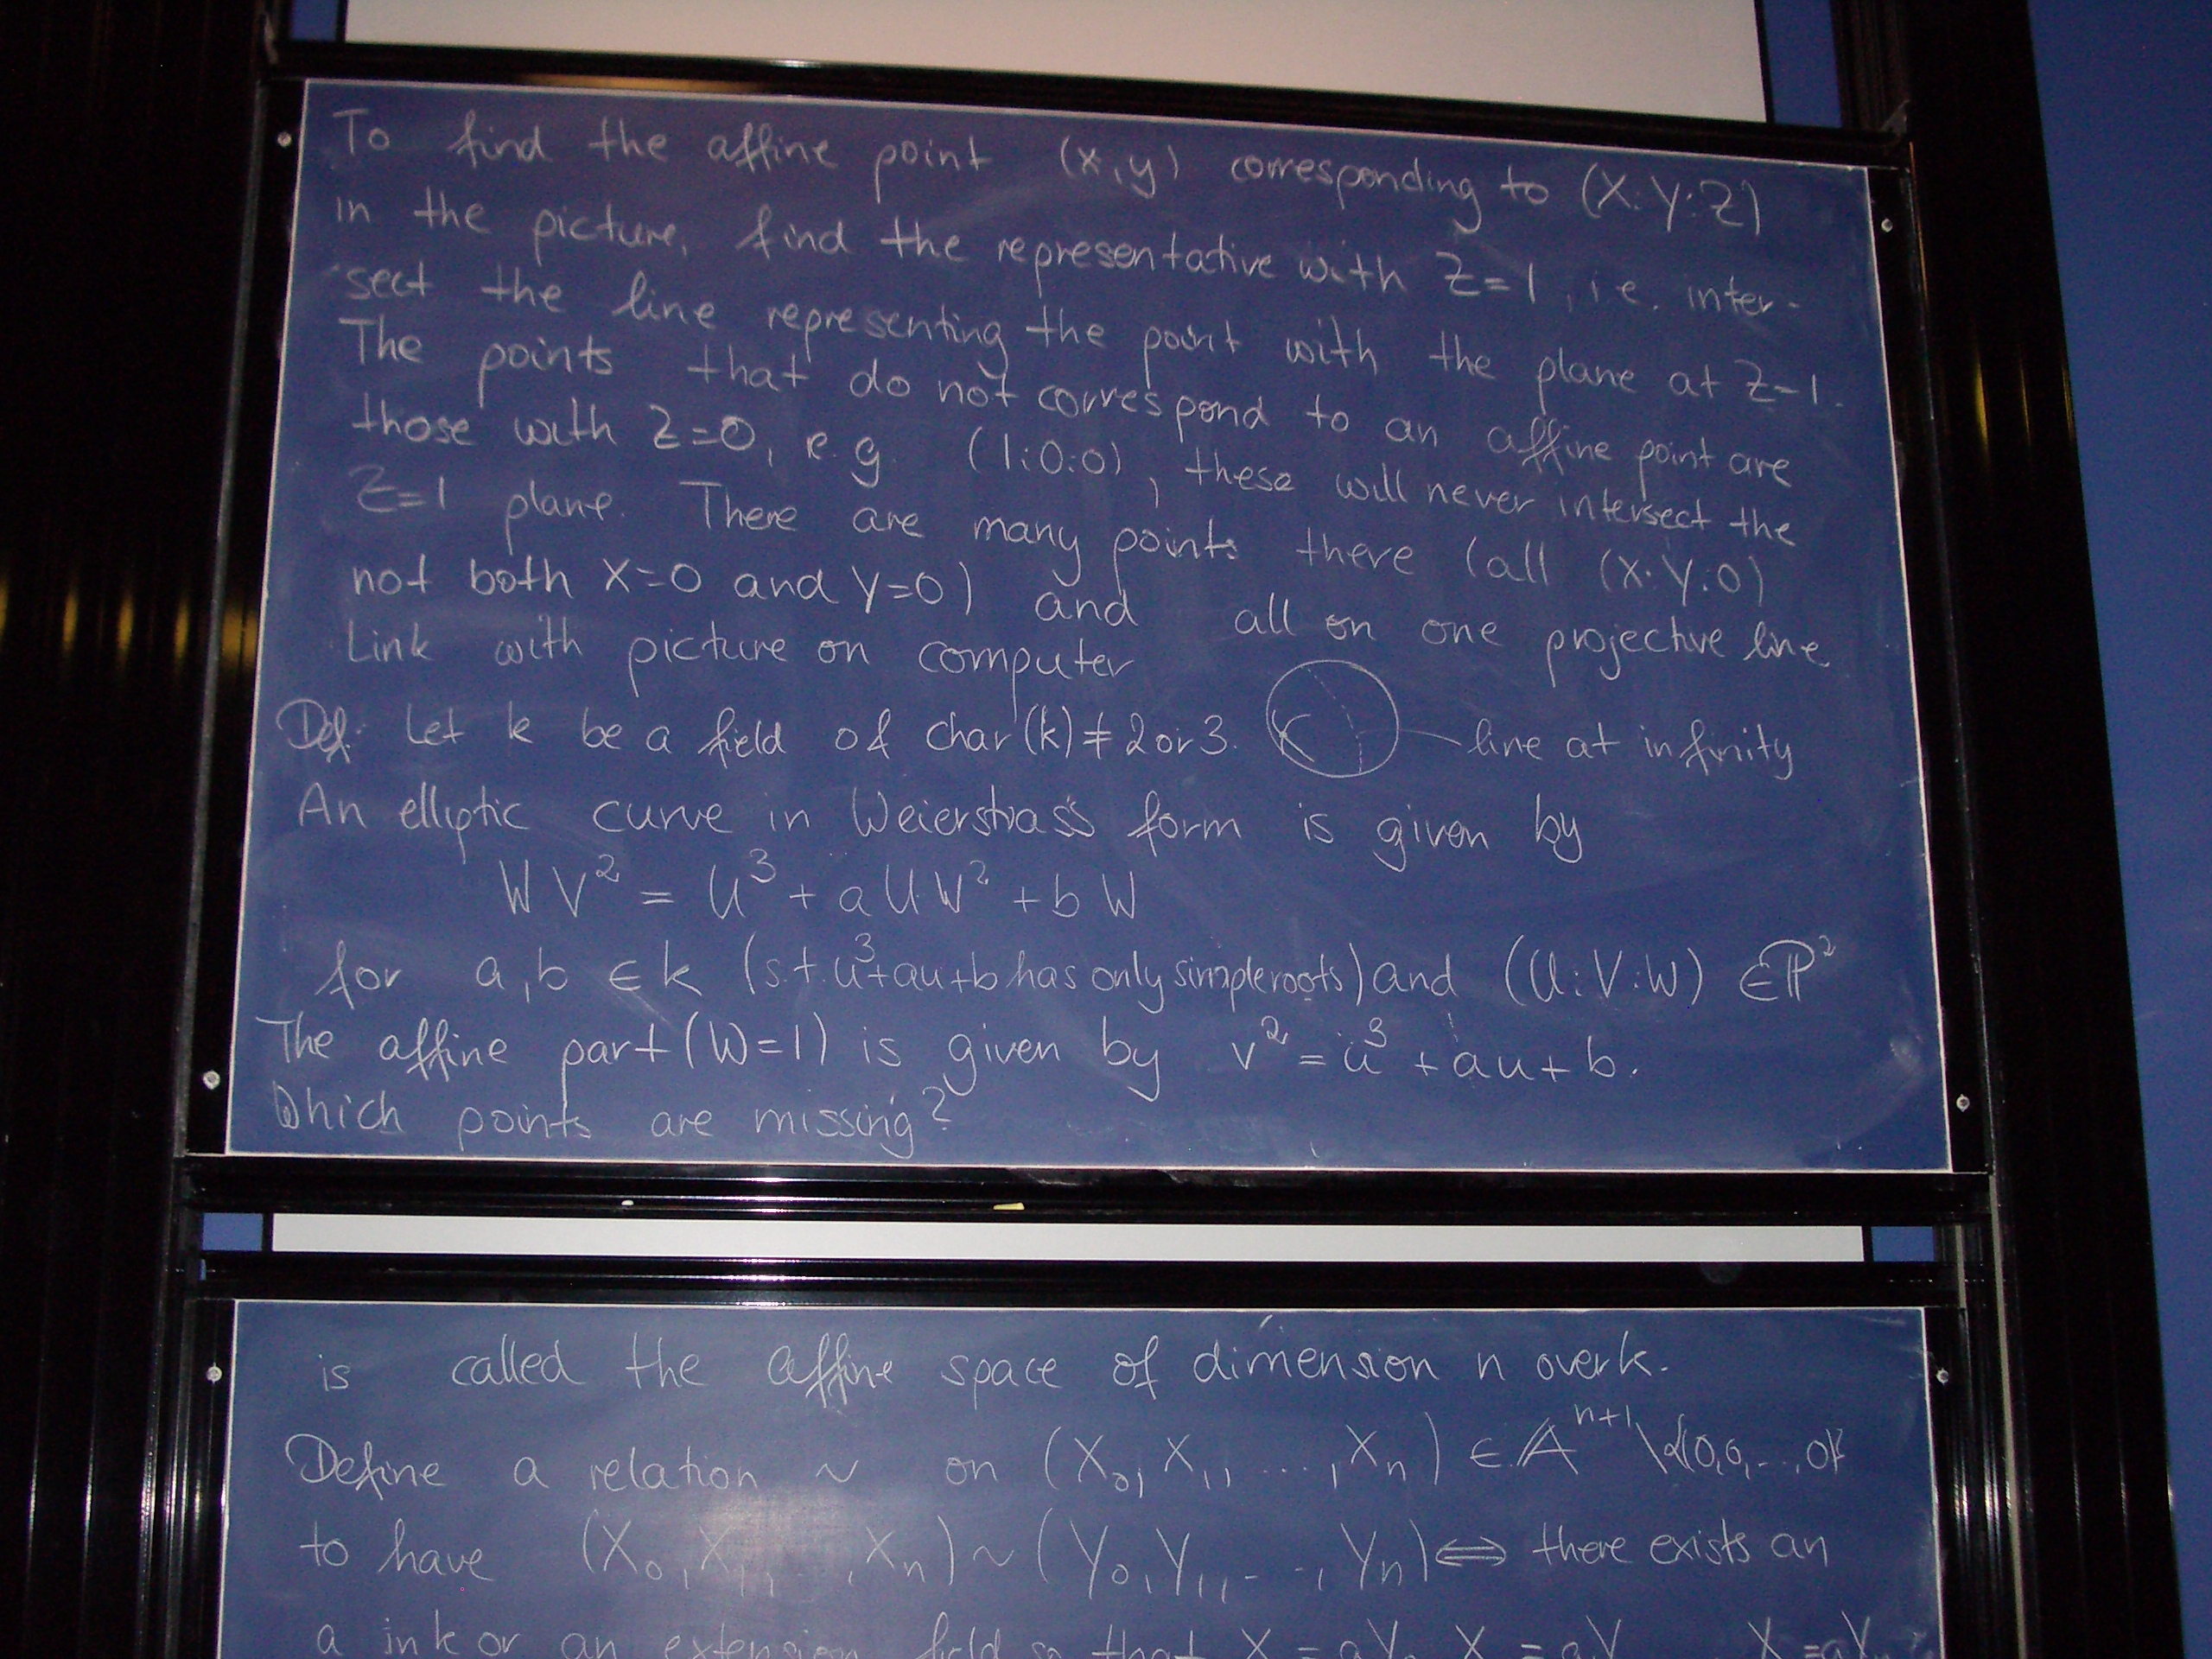 To find the affine point (x,y) corresponding to (X:Y:Z)
in the picture, find the representative with Z=1, i.e. inter-
sect the line representing the point with the plane at Z=1.
The points that do not correspond to an affine point are
those with Z=0, e.g. (1:0:0), these will never intersect the
Z=1 plane. There are many points there (all (X:Y:0)
not both X=0 and Y=0) and all on one projective line
Link with picture on computer
Def: Let k be a field of char(k)≠2 or 3.
line at infinity
An elliptic curve in Weierstrass form is given by
WV² = U³ + aUW² + bW
for a,b ∈ k (s.t. u³+au+b has only simple roots) and (U:V:W) ∈ ℙ²
The affine part (W=1) is given by v² = u³ + au + b.
Which points are missing?
is called the affine space of dimension n over k.
Define a relation ~ on (X₀, X₁, ..., Xₙ) ∈ 𝔸ⁿ⁺¹\{(0,0,...,0)}
to have (X₀, X₁, ..., Xₙ) ~ (Y₀, Y₁, ..., Yₙ) ⇔ there exists an
a in k or an extension field so that X = aY X = aY X = aY